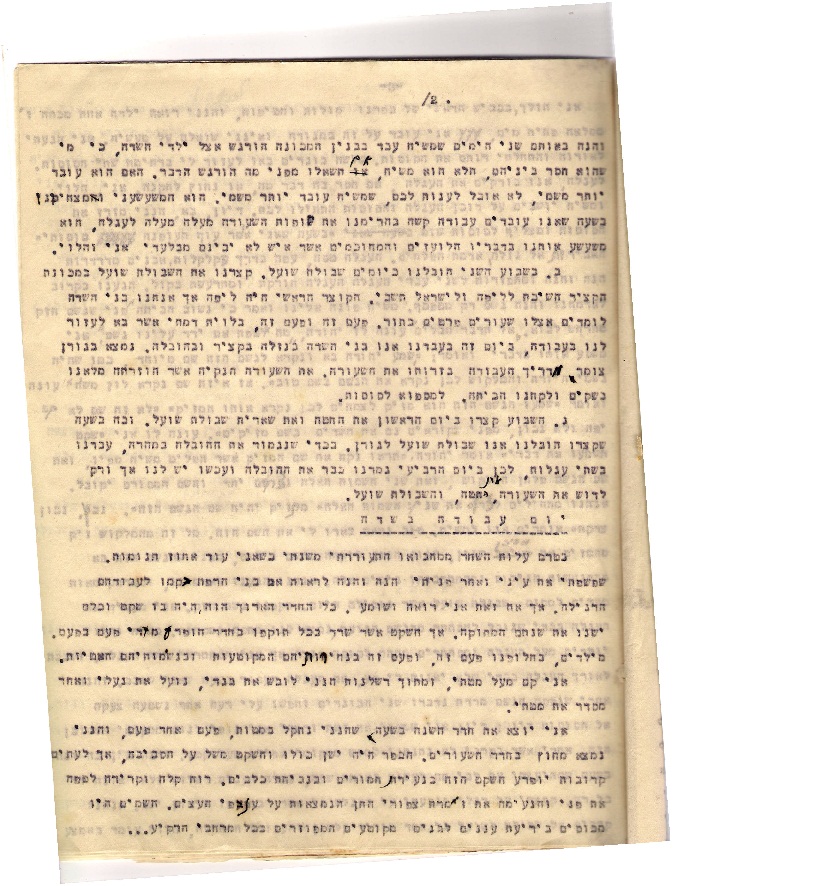 /2.
והנה באותם שני הימים שמשיח עבד בבנין המכונה הורגש אצל ילדי השדה, כי מי
שהוא חסר ביניהם, הלא הוא משיח, אם תשאלו מפני מה הורגש הדבר. האם הוא עובד
יותר משמי, לא אוכל לענות לכם, שמשיח עובד יותר משמי. הוא המשעשעני
בשעה שאנו עובדים עבודה קשה בהרימנו את שופות השעורה מעלה מעלה לעגלה, הוא
משעשע אותנו בדבריו הלועזים והמחוכמים אשר איש לא יבינם מבלעדי אני והלוי.
ב. בשבוע השני הובלנו כיומים שבולת שועל. קצרנו את השבולת שועל במכונת
הקציר השיכת לליפה ולישראל תשבי. הקוצר הראשי היה ליפה אך אנחנו בני השדה
לומדים אצלו שעורים פרטים בתור. פעם זה ופעם זה, בלוית רמחי אשר בא לעזור
לנו בעבודה, ביום זה בעברנו אנו בני השדה כגזלה בקציר ובהובלה. נמצא בגורן
צומר, מדריך העבודה בזרותו את השעורה. את השעורה הנקיה אשר הוזרתה מלאנו
בשקים ולקחנו הביתה. למספוא לסוסות.
ג. השבוע קצרו ביום הראשון את החטה ואת שארית שבולת שועל. ובה בשעה
שקצרו הובלנו אנו שבולת שועל לגורן. בכדי שנגמור את ההובלה במהרה, עבדנו
בשתי עגלות, לכן ביום הרביעי גמרנו כבר את ההובלה ועכשו יש לנו אך ורק
לדוש את השעורה, את החטה, והשבולת שועל.
יום עבודה בשדה
בטרם עלות השחר ממחבואו התעוררתי משנתי כשאני עוד אחוז תנומות.
שפשפתי את עיני ואחר פניתי הנה והנה לראות אם בני הרפת קמו לעבודתם
הרגילה. אך את זאת אני רואה ושומע. כל החדר הארוך הזה, היה בו שקט וכלם
ישנו את שנתם המתוקה. אך השקט אשר שרר בכל תוקפו בחדר הופרע מידי פעם בפעם.
מילדים, בחלופנו פעם זה, ופעם זה בנחירותיהם המקוטעות ובנשמותיהם האטיות.
אני קם מעל מטתי, ומתוך רשלנות הנני לובש את בגדי, נועל את נעלי ואחר
מסדר את מטתי.
אני יוצא את חדר השנה בשעה, שהנני נתקל במטות, פעם אחר פעם, והנני
נמצא מחוץ בחדר השעורים. הכפר היה ישן כולו והשקט משל על הסביבה, אך לעתים
קרובות יופרע השקט הזה בנעירת חמורים ובנביחת כלבים. רוח קלה וקרירה לטפה
את פני והנעימה את זמרת צפורי החן הנמצאות על ענפי העצים. השמים היו
מכוסים ביריעת עננים לבנים מקוטעים המפוזרים בכל מרחבי הרקיע...